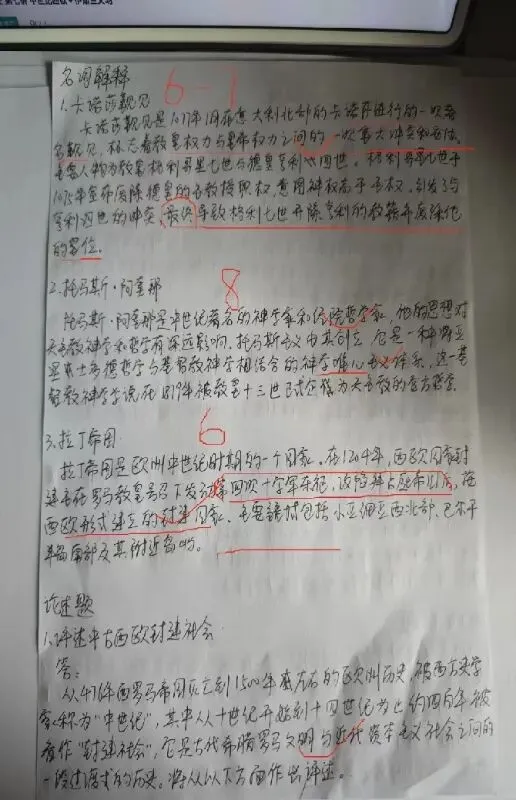 名词解释
6-7
1.卡诺莎觐见
卡诺莎觐见是1077年1月在意大利北部的卡诺莎进行的一次著
名觐见，标志着教皇权力与皇帝权力之间的一次重大冲突和妥协，
主要人物为教皇格利高里七世与德皇亨利四世。格利高里七世于
1075年宣布废除德皇的主教授职权，意图神权高于王权，引发了与
亨利四世的冲突，最终导致格利七世开除亨利的教籍并废除他
的皇位。
8
2.托马斯·阿奎那
托马斯·阿奎那是中世纪著名的神学家和经院哲学家，他的思想对
天主教神学和哲学有深远影响，托马斯主义由其创立，它是一种将亚
里士多德哲学与基督教神学相结合的神学唯心主义体系，这一基
督教神学学说在1879年被教皇十三世正式定为天主教的官方哲学
6
3.拉丁帝国
拉丁帝国是欧洲中世纪时期的一个国家。在1204年，西欧国家封
建主在罗马教皇号召下发动第四次十字军东征，攻陷并占据帝都后，按
西欧形式建立的封建国家。主要领土包括小亚细亚西北部、巴尔干
半岛南部及其附近岛屿。
论述题
1.评述中古西欧封建社会
答：
从476年西罗马帝国灭亡到1500年左右的欧洲历史，被西方史学
家称为“中世纪”，其中从十世纪开始到十四世纪为止约四百年被
看作“封建社会”，它是古代希腊罗马文明与近代资本主义社会之间的
一段过渡式的历史。将从以下方面作出评述。